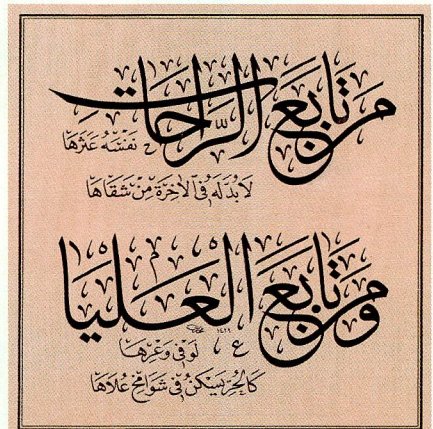 من تابع الراحات
نفسه عثرها
لا بد له في الاخرة من شقاها
ومن تابع العليا
لو في وعرها
كالحر يسكن في شوامخ علاها